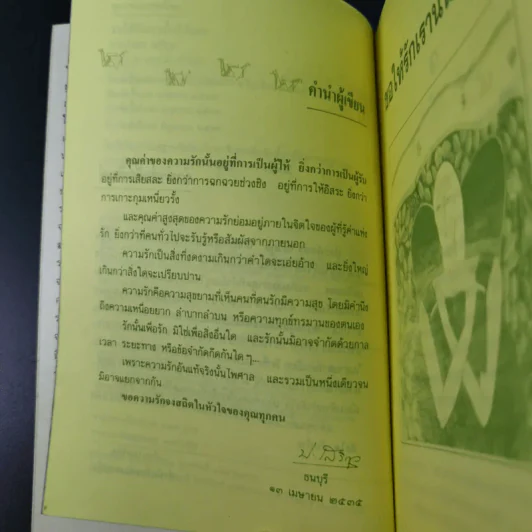 คำนำผู้เขียน
คุณค่าของความรักนั้นอยู่ที่การเป็นผู้ให้ ยิ่งกว่าการเป็นผู้รับ
อยู่ที่การเสียสละ ยิ่งกว่าการฉกฉวยช่วงชิง อยู่ที่การให้อิสระ ยิ่งกว่า
การเกาะกุมเหนี่ยวรั้ง
และคุณค่าสูงสุดของความรักย่อมอยู่ภายในจิตใจของผู้ที่รู้ค่าแห่ง
รัก ยิ่งกว่าที่คนทั่วไปจะรับรู้หรือสัมผัสจากภายนอก
ความรักเป็นสิ่งที่งดงามเกินกว่าคำใดจะเอ่ยอ้าง และยิ่งใหญ่
เกินกว่าสิ่งใดจะเปรียบปาน
ความรักคือความสุขยามที่เห็นคนที่ตนรักมีความสุข โดยมิคำนึง
ถึงความเหนื่อยยาก ลำบากลำบน หรือความทุกข์ทรมานของตนเอง
รักนั้นเพื่อรัก มิใช่เพื่อสิ่งอื่นใด และรักนั้นมิอาจจำกัดด้วยกาล
เวลา ระยะทาง หรือข้อจำกัดกีดกันใด ๆ...
เพราะความรักอันแท้จริงนั้นไพศาล และรวมเป็นหนึ่งเดียวจน
มิอาจแยกจากกัน
ขอความรักจงสถิตในหัวใจของคุณทุกคน
ธนบุรี
๑๓ เมษายน ๒๕๓๕
ขอให้รักเรานั้น